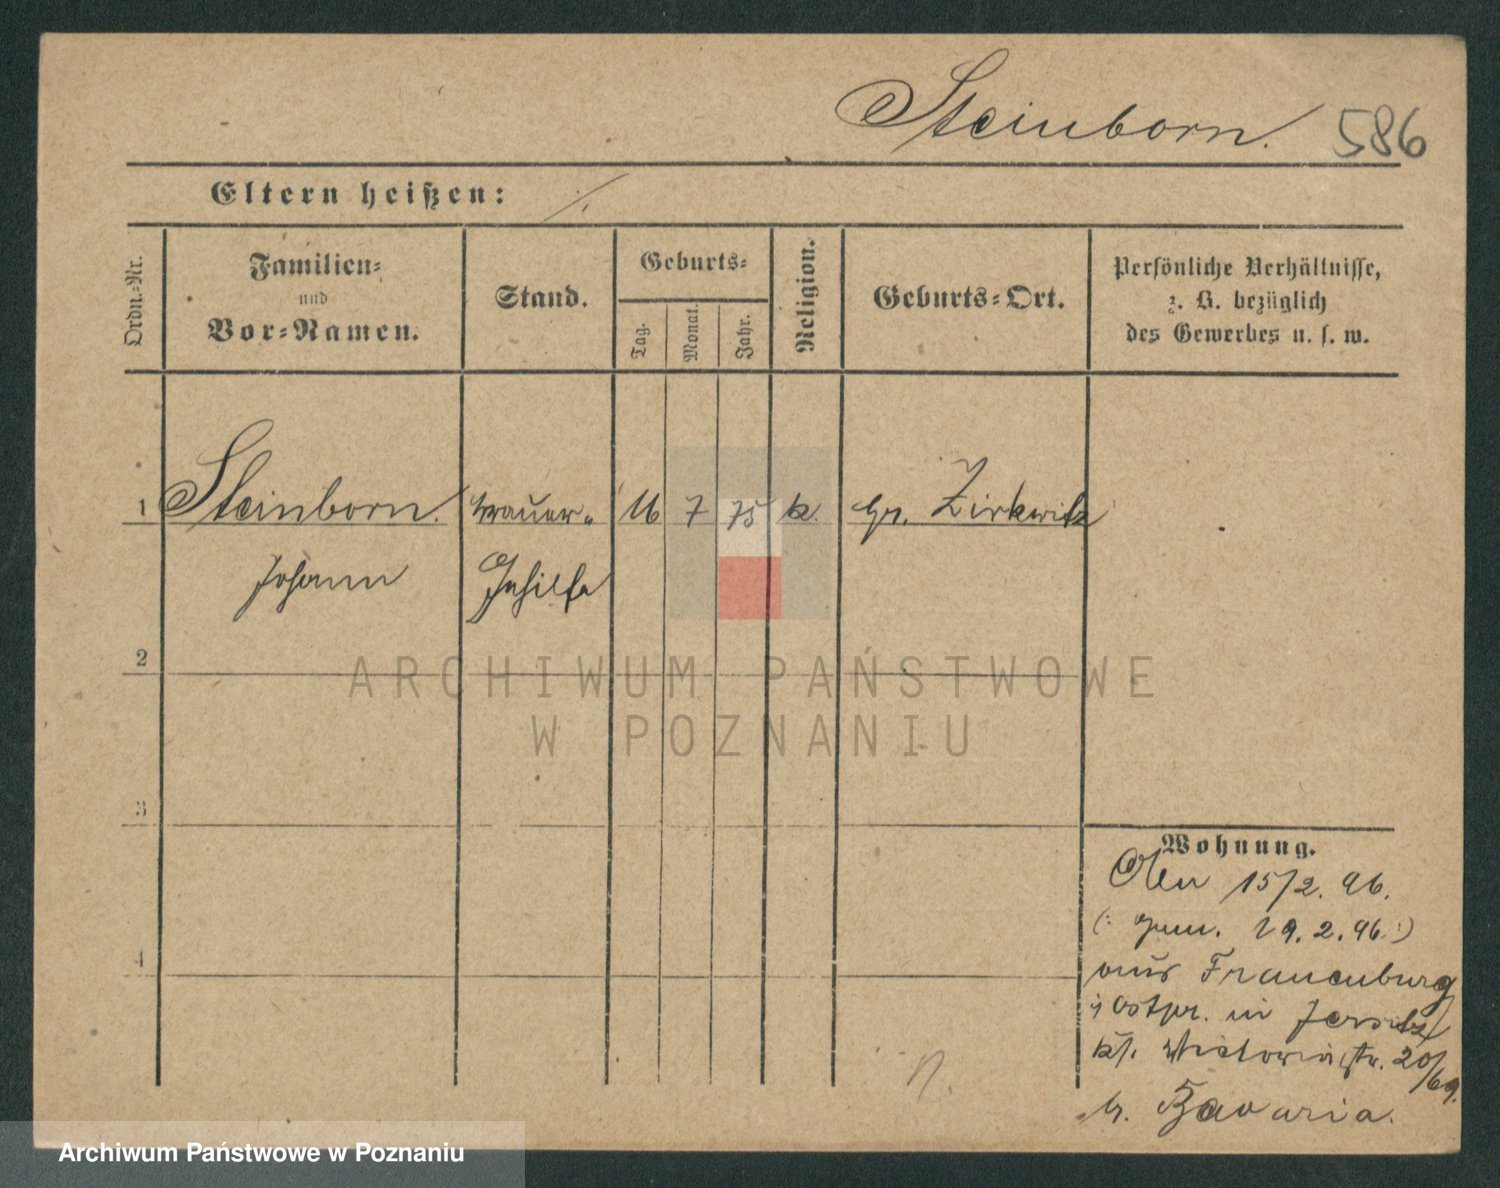 Steinborn. 586
Eltern heißen: ./.
Ordn.-Nr.
Familien-
und
Vor-Namen.
Stand.
Geburts-
Tag.
Monat.
Jahr.
Religion.
Geburts-Ort.
Persönliche Verhältnisse,
z. B. bezüglich
des Gewerbes u. s. w.
1 Steinborn. Brauer- 16 7 75 k. Gr. Zirkwitz
Johann Gehilfe
2
ARCHIWUM PAŃSTWOWE
W POZNANIU
3
Wohnung.
15/2. 96.
(: Gem. 19. 2. 96 :)
4
aus Frauenburg
i Ostpr. in Jersitz
kl. Victoriastr. 20/69.
b. Bavaria.
n.
Archiwum Państwowe w Poznaniu